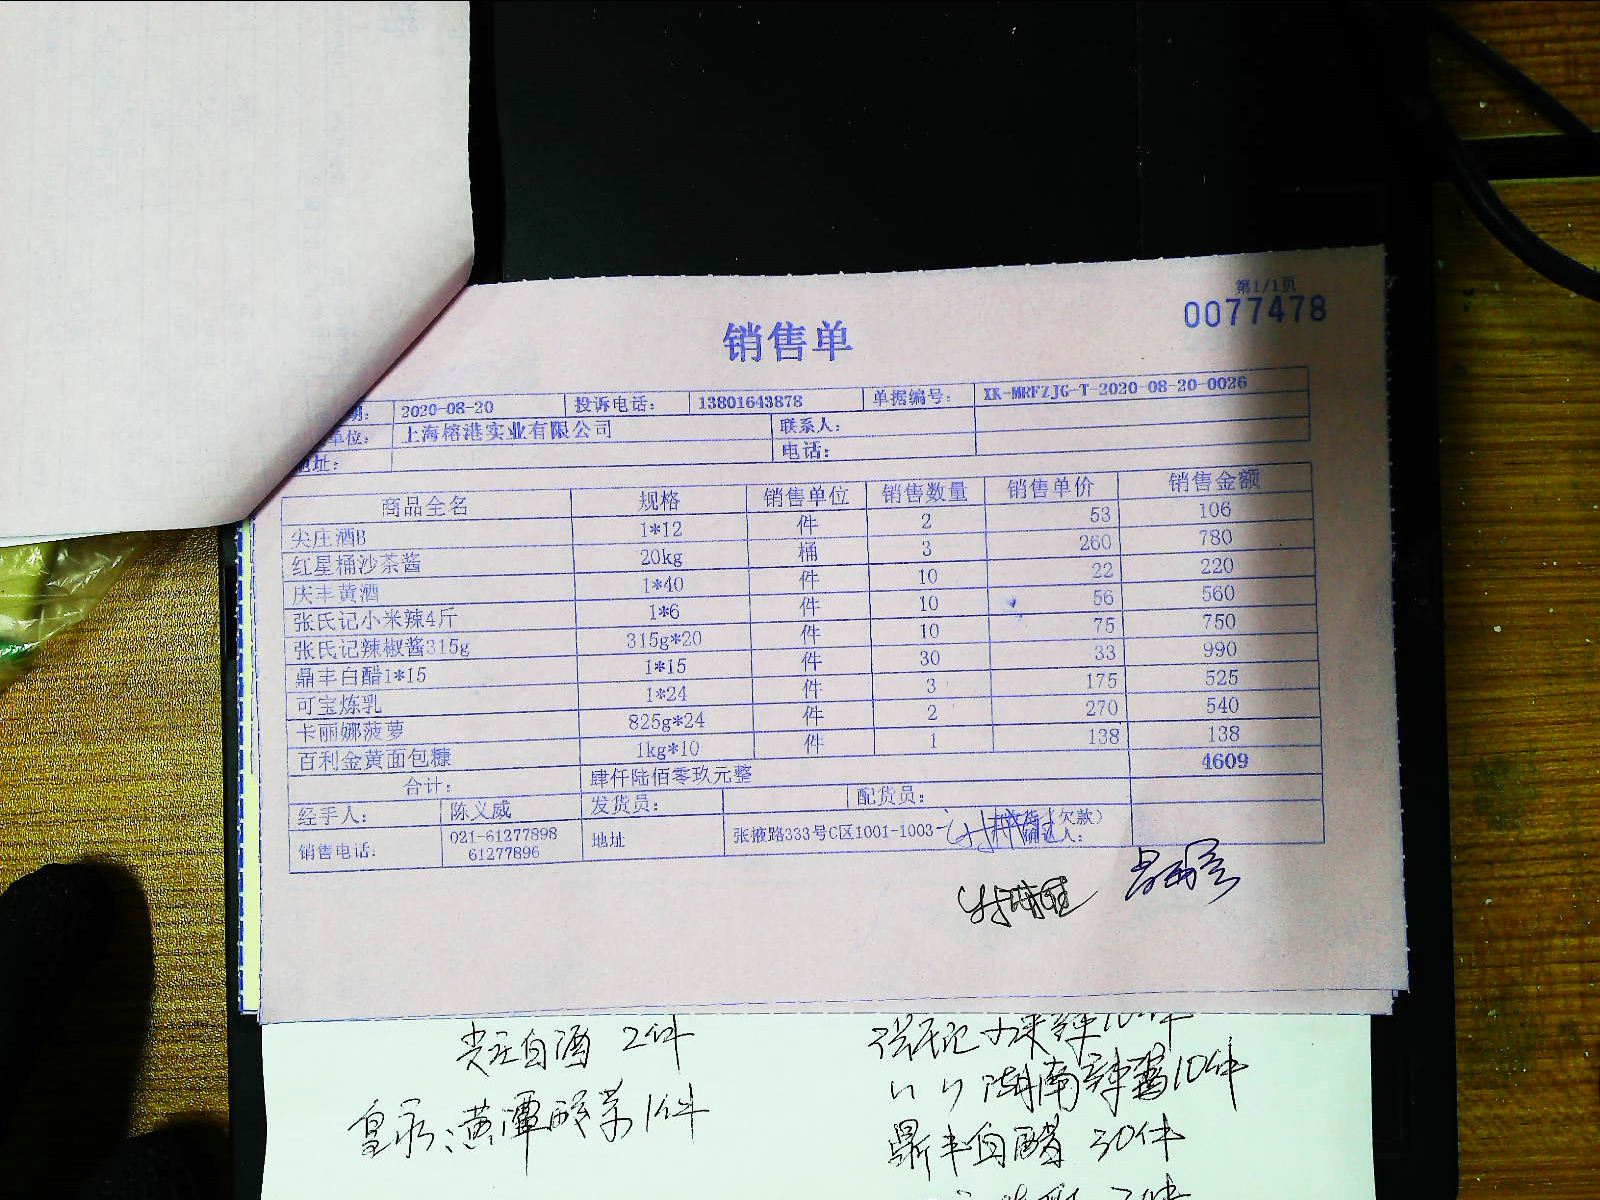 第1/1页
0077478
销售单
期： 2020-08-20 投诉电话： 13801643878 单据编号： XK-MRFZJG-T-2020-08-20-0026
单位： 上海榕港实业有限公司 联系人：
地址： 电话：
商品全名 规格 销售单位 销售数量 销售单价 销售金额
尖庄酒B 1*12 件 2 53 106
红星桶沙茶酱 20kg 桶 3 260 780
庆丰黄酒 1*40 件 10 22 220
张氏记小米辣4斤 1*6 件 10 56 560
张氏记辣椒酱315g 315g*20 件 10 75 750
鼎丰白醋1*15 1*15 件 30 33 990
可宝炼乳 1*24 件 3 175 525
卡丽娜菠萝 825g*24 件 2 270 540
百利金黄面包糠 1kg*10 件 1 138 138
合计： 肆仟陆佰零玖元整 4609
经手人： 陈义威 发货员： 配货员：
销售电话： 021-61277898 61277896 地址 张掖路333号C区1001-1003- （欠款）确认人：
尖庄白酒 2件 张氏记小米辣10件
〃 〃 湖南辣酱10件
皇永 黄潭酸菜1件
鼎丰白醋 30件